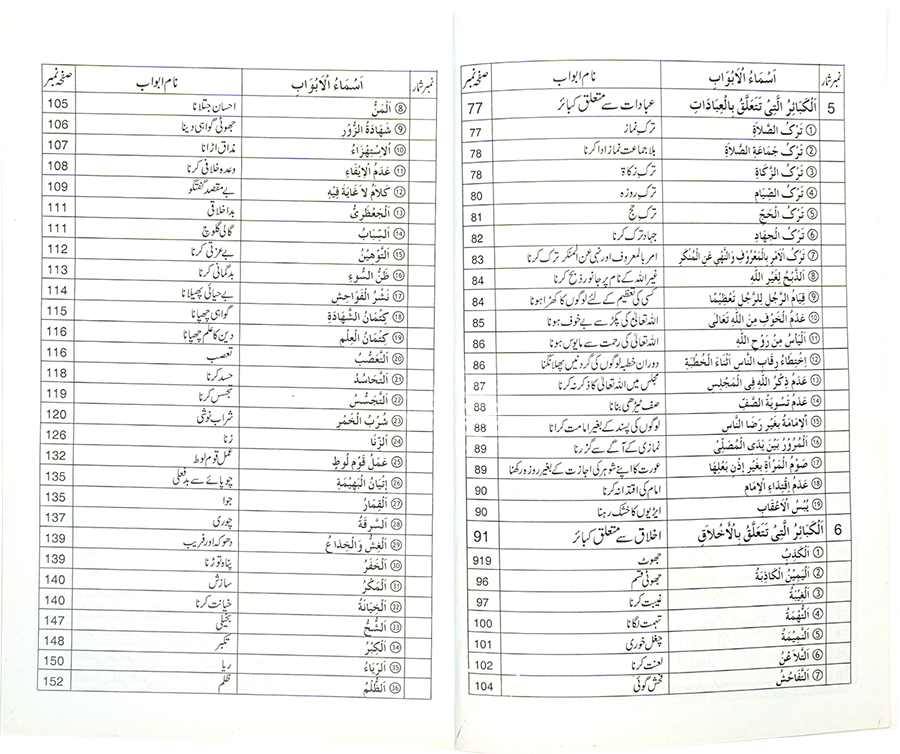 نمبر شمار اَسْمَاءُ الْاَبْوَابِ نام ابواب صفحہ نمبر
5 اَلْكَبَائِرُ الَّتِيْ تَتَعَلَّقُ بِالْعِبَادَاتِ عبادات سے متعلق کبائر 77
① تَرْكُ الصَّلَاةِ ترک نماز 77
② تَرْكُ جَمَاعَةِ الصَّلَاةِ بلا جماعت نماز ادا کرنا 78
③ تَرْكُ الزَّكَاةِ ترک زکاۃ 78
④ تَرْكُ الصِّيَامِ ترک روزہ 80
⑤ تَرْكُ الْحَجِّ ترک حج 81
⑥ تَرْكُ الْجِهَادِ جہاد ترک کرنا 82
⑦ تَرْكُ الْاَمْرِ بِالْمَعْرُوْفِ وَالنَّهْيِ عَنِ الْمُنْكَرِ امر بالمعروف اور نہی عن المنکر ترک کرنا 83
⑧ اَلذَّبْحُ لِغَيْرِ اللّٰهِ غیر اللہ کے نام پر جانور ذبح کرنا 84
⑨ قِيَامُ الرَّجُلِ لِلرَّجُلِ تَعْظِيْمًا کسی کی تعظیم کے لئے لوگوں کا کھڑا ہونا 84
⑩ عَدَمُ الْخَوْفِ مِنَ اللّٰهِ تَعَالٰى اللہ تعالیٰ کی پکڑ سے بے خوف ہونا 85
⑪ اَلْيَأْسُ مِنْ رَوْحِ اللّٰهِ اللہ تعالیٰ کی رحمت سے مایوس ہونا 86
⑫ اِخْتِطَاءُ رِقَابِ النَّاسِ اَثْنَاءَ الْخُطْبَةِ دوران خطبہ لوگوں کی گردنیں پھلانگنا 86
⑬ عَدَمُ ذِكْرِ اللّٰهِ فِي الْمَجْلِسِ مجلس میں اللہ تعالیٰ کا ذکر نہ کرنا 87
⑭ عَدَمُ تَسْوِيَةِ الصَّفِّ صف ٹیڑھی بنانا 88
⑮ اَلْاِمَامَةُ بِغَيْرِ رِضَا النَّاسِ لوگوں کی پسند کے بغیر امامت کرانا 88
⑯ اَلْمُرُوْرُ بَيْنَ يَدَيِ الْمُصَلِّيْ نمازی کے آگے سے گزرنا 89
⑰ صَوْمُ الْمَرْأَةِ بِغَيْرِ اِذْنِ بَعْلِهَا عورت کا اپنے شوہر کی اجازت کے بغیر روزہ رکھنا 89
⑱ عَدَمُ اِقْتِدَاءِ الْاِمَامِ امام کی اقتدا نہ کرنا 90
⑲ يُبْسُ الْاَعْقَابِ ایڑیوں کا خشک رہنا 90
6 اَلْكَبَائِرُ الَّتِيْ تَتَعَلَّقُ بِالْاَخْلَاقِ اخلاق سے متعلق کبائر 91
① اَلْكَذِبُ جھوٹ 919
② اَلْيَمِيْنُ الْكَاذِبَةُ جھوٹی قسم 96
③ اَلْغِيْبَةُ غیبت کرنا 97
④ اَلتُّهْمَةُ تہمت لگانا 100
⑤ اَلنَّمِيْمَةُ چغل خوری 101
⑥ اَلتَّلَاعُنُ لعنت کرنا 102
⑦ اَلتَّفَاحُشُ فحش گوئی 104
نمبر شمار اَسْمَاءُ الْاَبْوَابِ نام ابواب صفحہ نمبر
⑧ اَلْمَنُّ احسان جتلانا 105
⑨ شَهَادَةُ الزُّوْرِ جھوٹی گواہی دینا 106
⑩ اَلْاِسْتِهْزَاءُ مذاق اڑانا 107
⑪ عَدَمُ الْاِيْفَاءِ وعدہ خلافی کرنا 108
⑫ كَلَامُ لَا غَايَةَ فِيْهِ بے مقصد گفتگو 109
⑬ اَلْجَعْظَرِيُّ بداخلاقی 111
⑭ اَلسِّبَابُ گالی گلوچ 111
⑮ اَلتَّوْهِيْنُ بے عزتی کرنا 112
⑯ ظَنُّ السُّوْءِ بدگمانی کرنا 113
⑰ نَشْرُ الْفَوَاحِشِ بے حیائی پھیلانا 114
⑱ كِتْمَانُ الشَّهَادَةِ گواہی چھپانا 115
⑲ كِتْمَانُ الْعِلْمِ دین کا علم چھپانا 116
⑳ اَلتَّعَصُّبُ تعصب 116
㉑ اَلتَّحَاسُدُ حسد کرنا 118
㉒ اَلتَّجَسُّسُ تجسس کرنا 119
㉓ شُرْبُ الْخَمْرِ شراب نوشی 120
㉔ اَلزِّنَا زنا 126
㉕ عَمَلُ قَوْمِ لُوْطٍ عمل قوم لوط 132
㉖ اِتْيَانُ الْبَهِيْمَةِ چوپائے سے بدفعلی 135
㉗ اَلْقِمَارُ جوا 135
㉘ اَلسَّرِقَةُ چوری 137
㉙ اَلْغِشُّ وَالْخِدَاعُ دھوکہ اور فریب 139
㉚ اَلْخَفَرُ پناہ توڑنا 139
㉛ اَلْمَكْرُ سازش 140
㉜ اَلْخِيَانَةُ خیانت کرنا 140
㉝ اَلشُّحُّ بخیلی 147
㉞ اَلْكِبْرُ تکبر 148
㉟ اَلرِّيَاءُ ریا 150
㊱ اَلظُّلْمُ ظلم 152